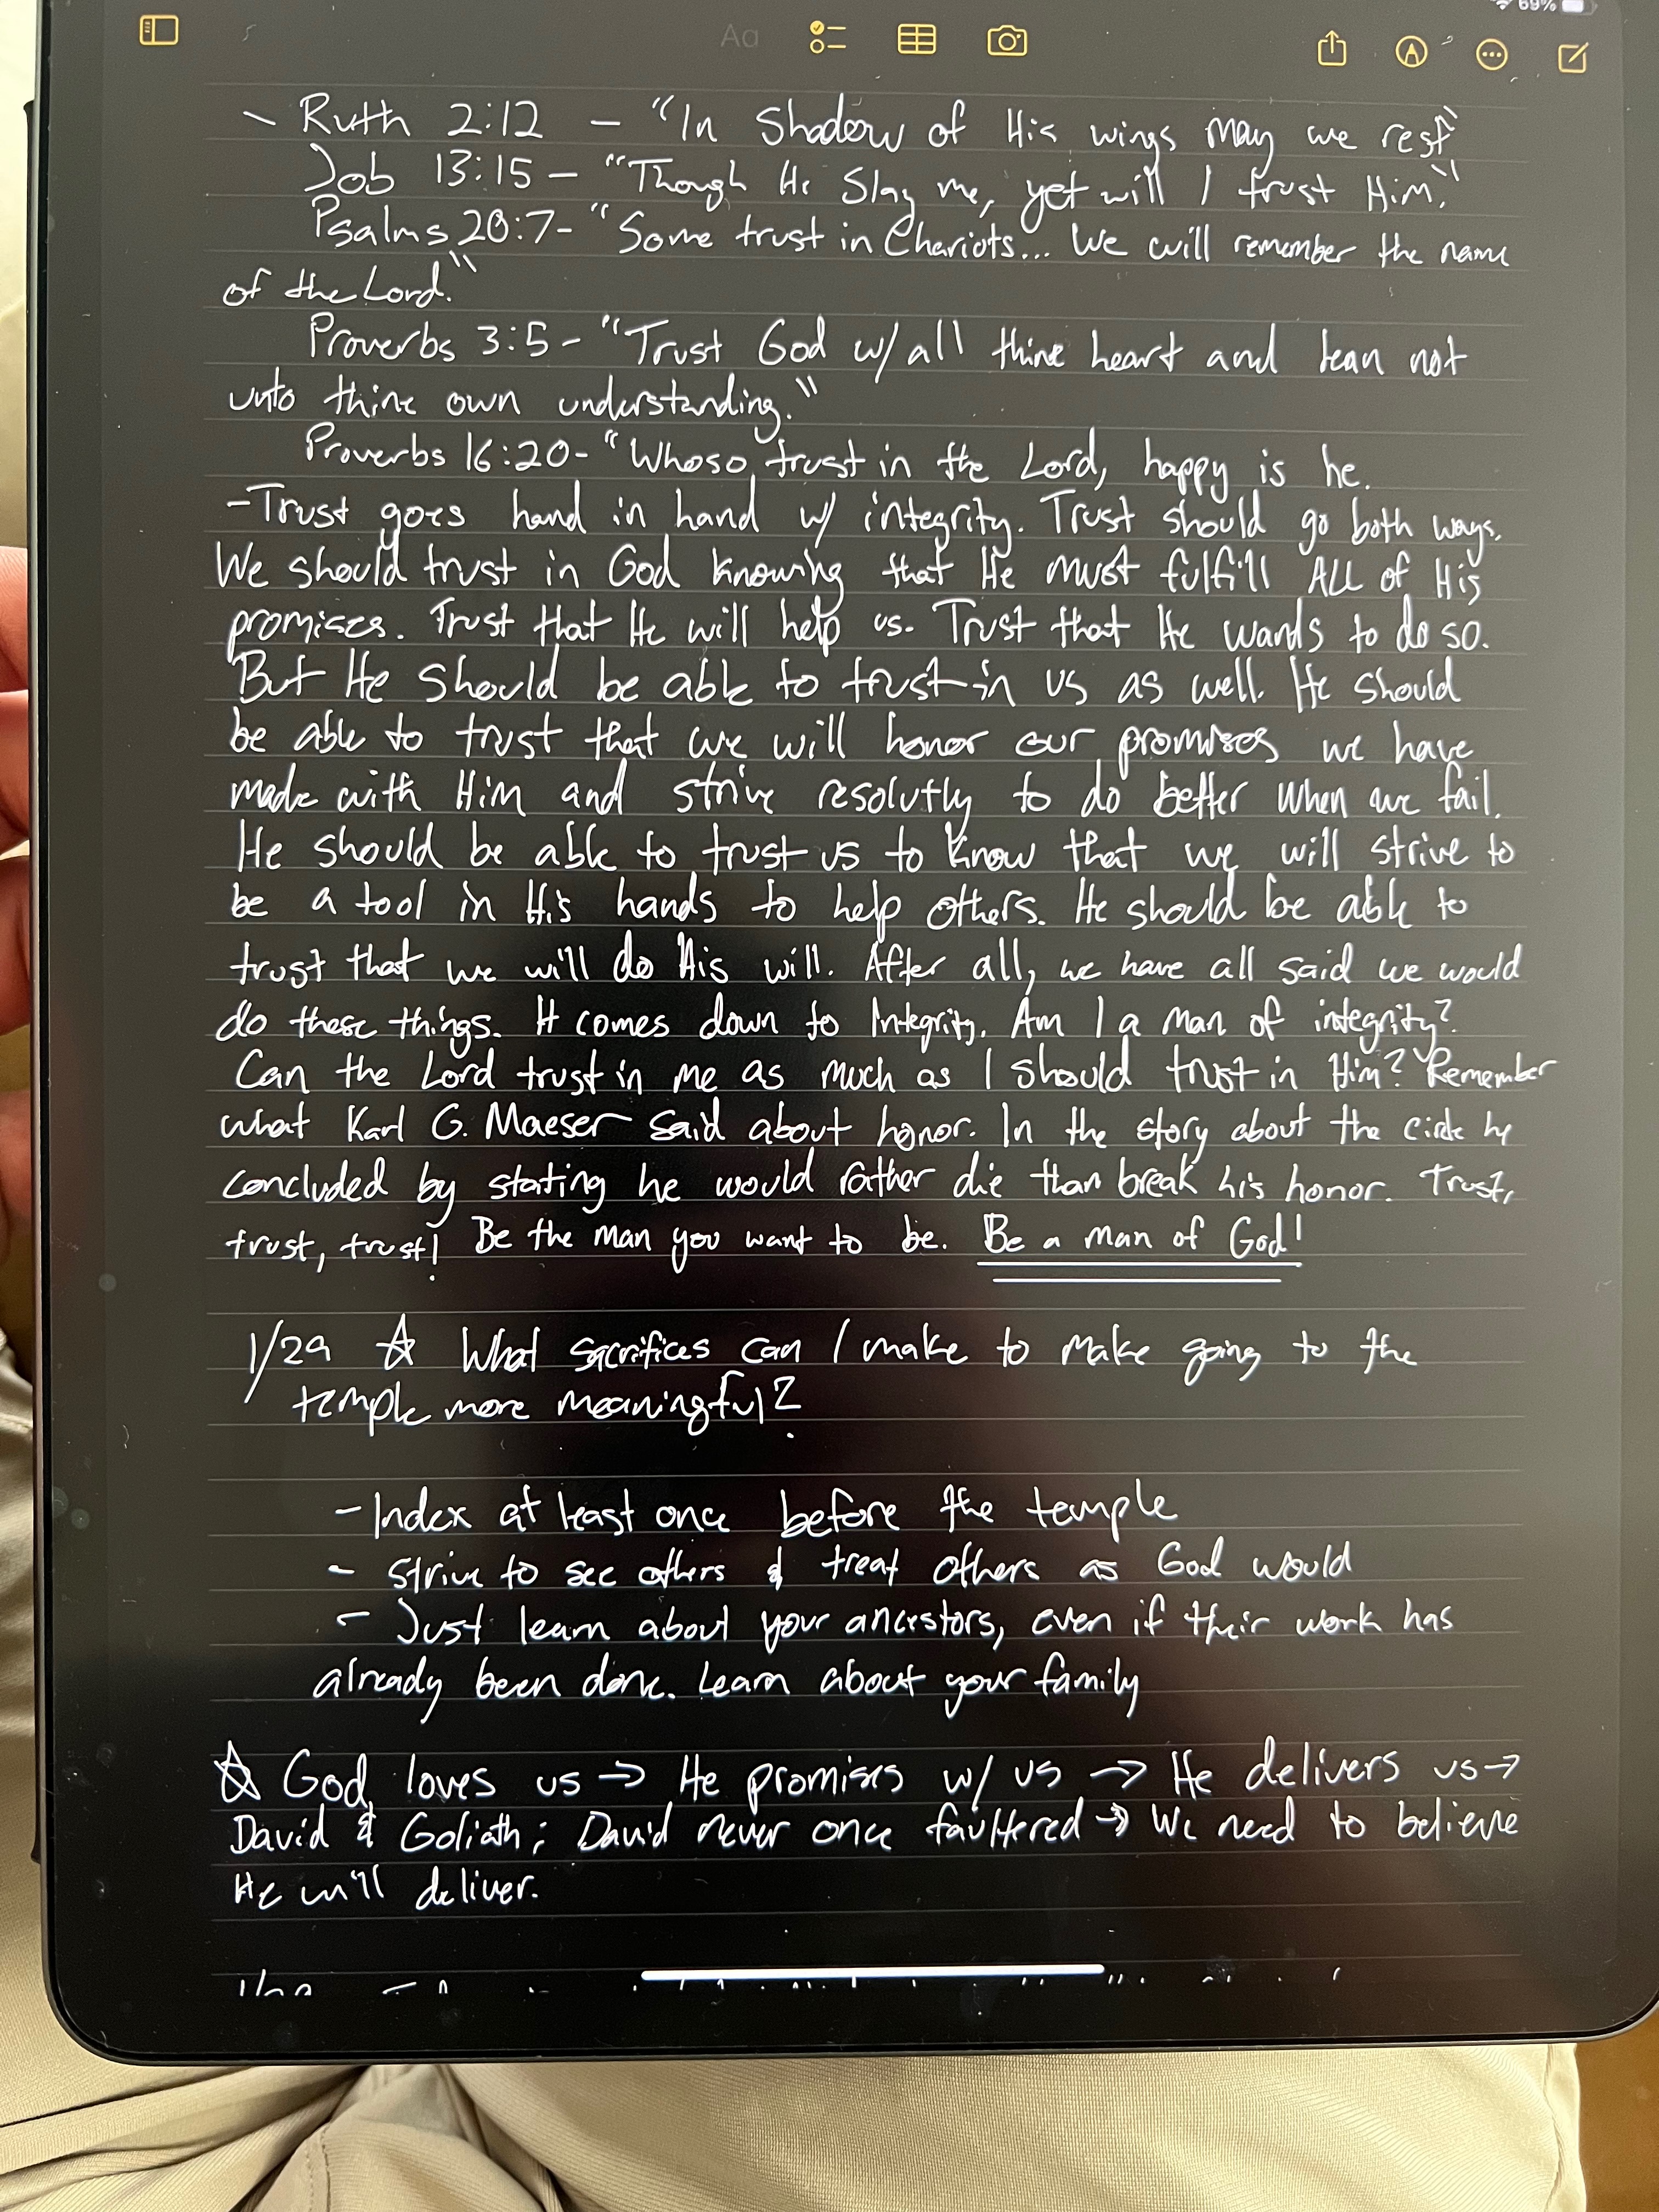 69%
Aa
- Ruth 2:12 - "In Shadow of His wings may we rest"
Job 13:15 - "Though He Slay me, yet will I trust Him."
Psalms 20:7- "Some trust in Chariots... We will remember the name
of the Lord."
Proverbs 3:5 - "Trust God w/ all thine heart and lean not
unto thine own understanding."
Proverbs 16:20- "Whoso trust in the Lord, happy is he.
- Trust goes hand in hand w/ integrity. Trust should go both ways.
We should trust in God knowing that He must fulfill ALL of His
promises. Trust that He will help us. Trust that He wants to do so.
But He should be able to trust in us as well. He should
be able to trust that we will honor our promises we have
made with Him and strive resolutly to do better when we fail.
He should be able to trust us to know that we will strive to
be a tool in His hands to help others. He should be able to
trust that we will do His will. After all, we have all said we would
do these things. It comes down to Integrity. Am I a man of integrity?
Can the Lord trust in me as much as I should trust in Him? Remember
what Karl G. Maeser said about honor. In the story about the circle he
concluded by stating he would rather die than break his honor. Trust,
trust, trust! Be the man you want to be. Be a man of God!
1/29 ☆ What sacrifices can I make to make going to the
temple more meaningful?
- Index at least once before the temple
- strive to see others & treat others as God would
- Just learn about your ancestors, even if their work has
already been done. Learn about your family
☆ God loves us → He promises w/ us → He delivers us →
David & Goliath; David never once faultered → We need to believe
He will deliver.